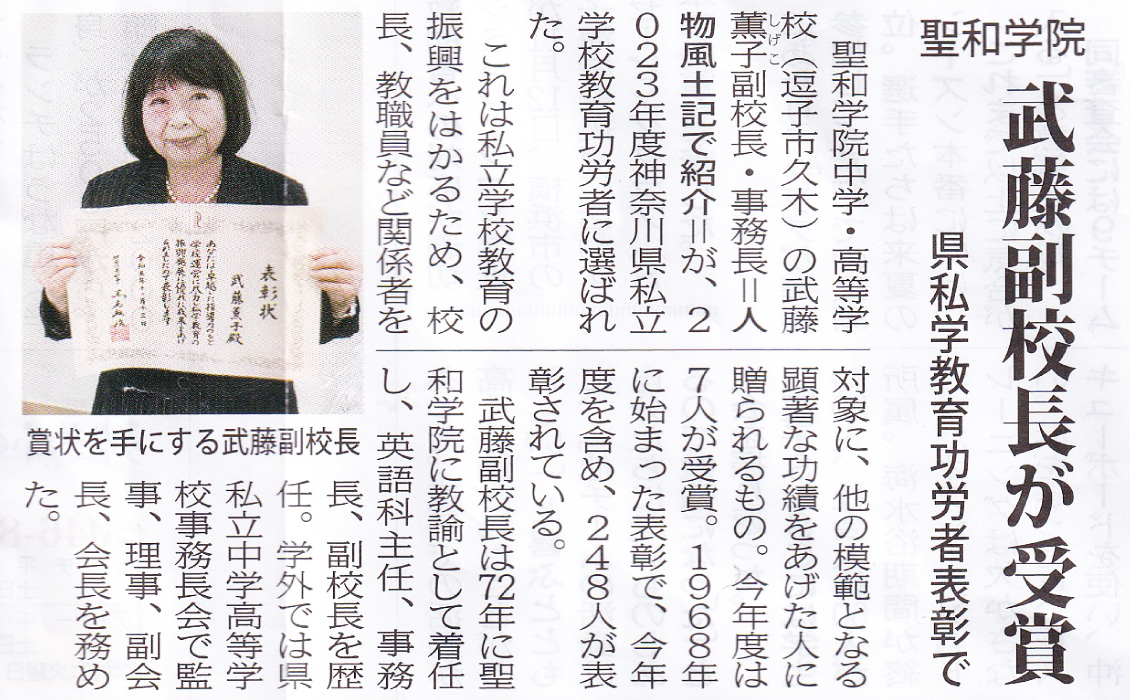 聖和学院
武藤副校長が受賞
県私学教育功労者表彰で
聖和学院中学・高等学
校（逗子市久木）の武藤
薫子副校長・事務長＝人
しげこ
物風土記で紹介＝が、2
023年度神奈川県私立
学校教育功労者に選ばれ
た。
これは私立学校教育の
振興をはかるため、校
長、教職員など関係者を
対象に、他の模範となる
顕著な功績をあげた人に
贈られるもの。今年度は
7人が受賞。1968年
に始まった表彰で、今年
度を含め、248人が表
彰されている。
武藤副校長は72年に聖
和学院に教諭として着任
し、英語科主任、事務
長、副校長を歴
任。学外では県
私立中学高等学
校事務長会で監
事、理事、副会
長、会長を務め
た。
賞状を手にする武藤副校長
表彰状
武藤薫子殿